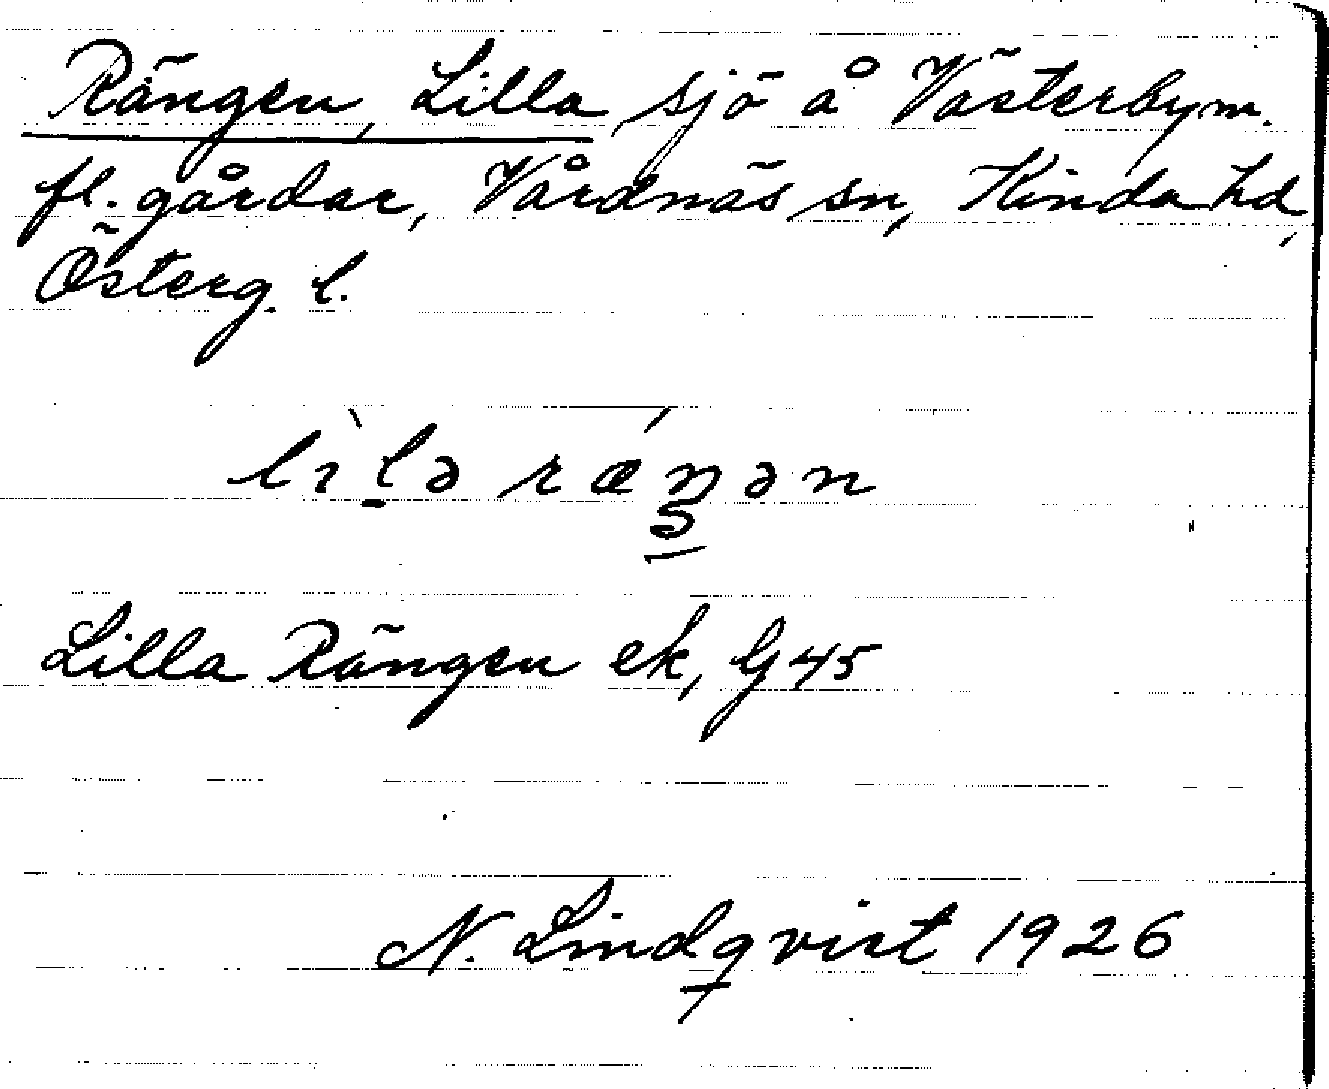 Rängen, Lilla sjö å Västerby m.
fl. gårdar, Vårdnäs sn, Kinda hd,
Österg. l.
lìlə rǽŋən
Lilla Rängen ek, G45
N. Lindqvist 1926